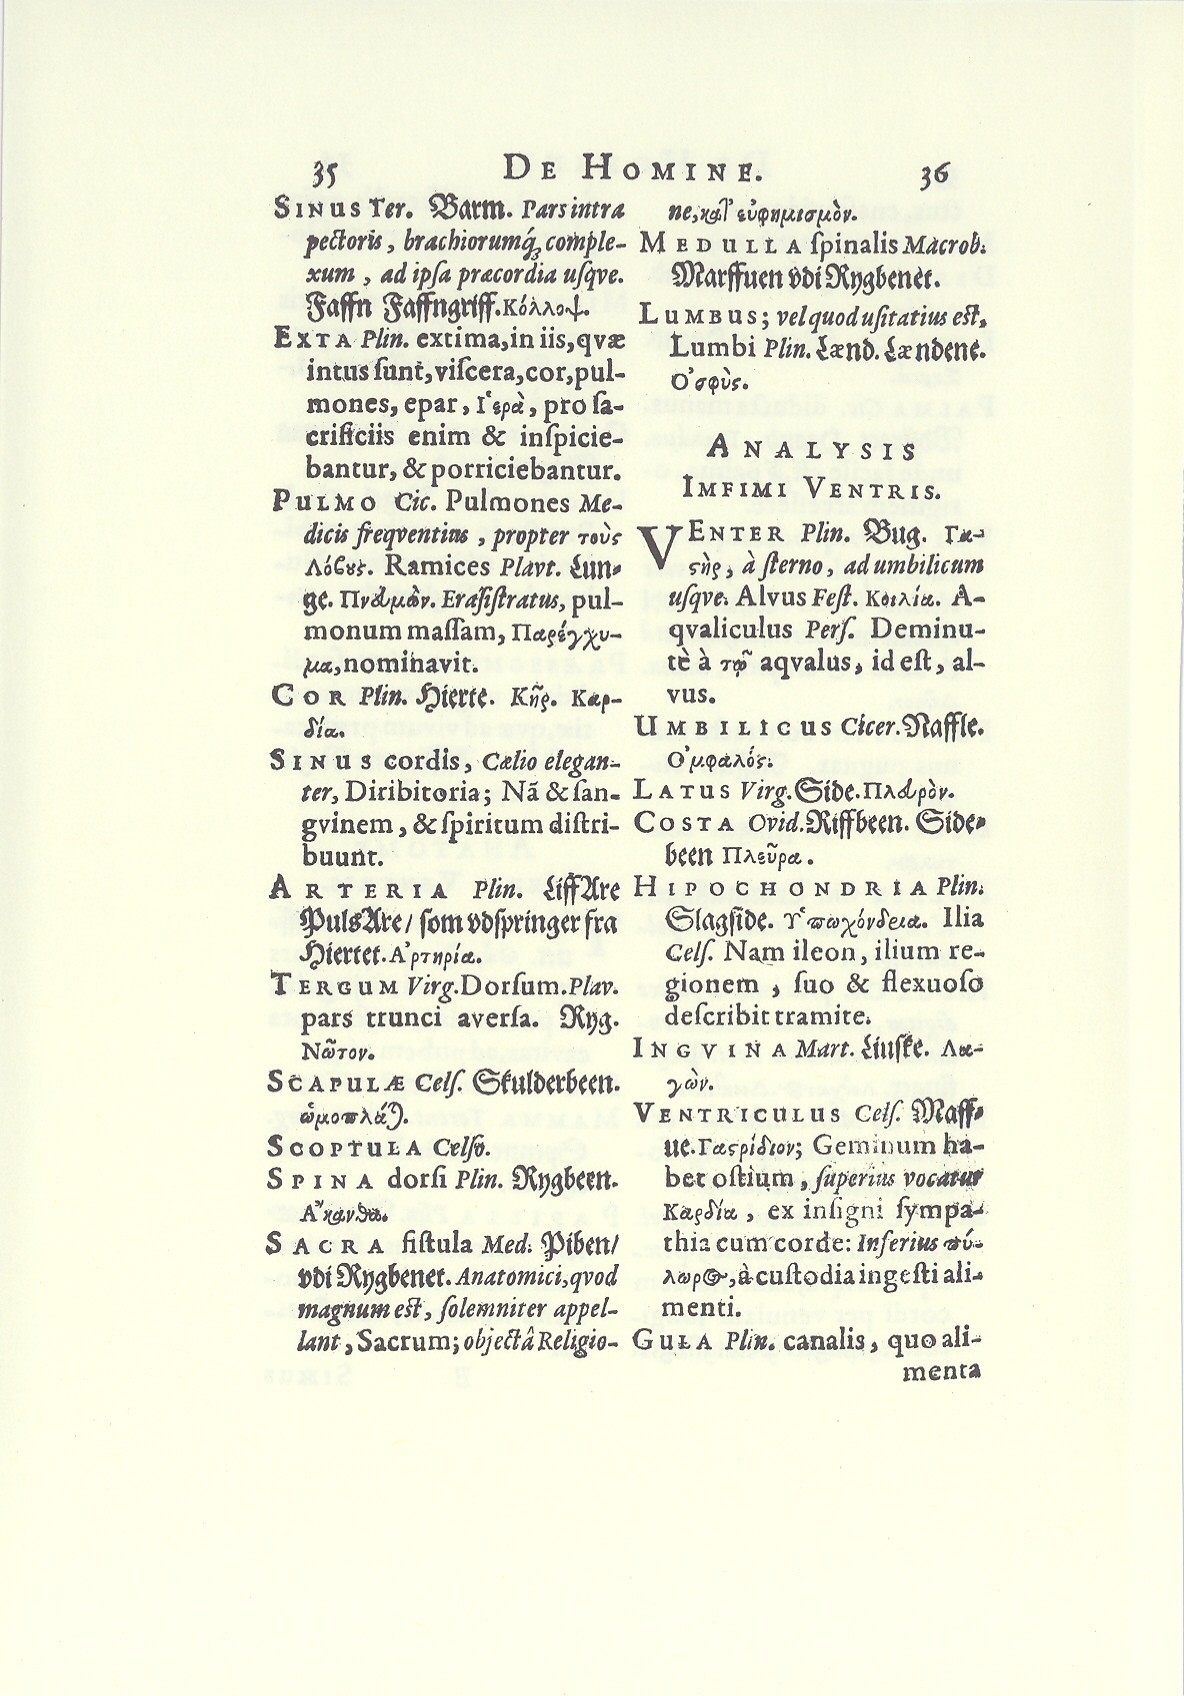 35 DE HOMINE. 36
SINUS Ter. Barm. Pars intra
pectoris, brachiorumq́ꝫ comple-
xum, ad ipſa præcordia uſqve.
Faffn Faffngriff. Κόλλοψ.
EXTA Plin. extima, in iis, qvæ
intus ſunt, viſcera, cor, pul-
mones, epar, Ἱερὰ, pro ſa-
crificiis enim & inſpicie-
bantur, & porriciebantur.
PULMO Cic. Pulmones Me-
dicis freqventius, propter τοὺς
Λόβους. Ramices Plavt. Lun-
ge. Πνευμὼν. Eraſiſtratus, pul-
monum maſſam, Παρέγχυ-
μα, nominavit.
COR Plin. Hierte. Κῆρ. Καρ-
δία.
SINUS cordis, Cælio elegan-
ter, Diribitoria; Nã & ſan-
gvinem, & ſpiritum diſtri-
buunt.
ARTERIA Plin. LiffAre
PulsAre/ ſom vdſpringer fra
Hiertet. Ἀρτηρία.
TERGUM Virg. Dorſum. Plav.
pars trunci averſa. Ryg.
Νῶτον.
SCAPULÆ Celſ. Skulderbeen.
ὠμοπλάται.
SCOPTULA Celſo.
SPINA dorſi Plin. Rygbeen.
Ἄκανθα.
SACRA fiſtula Med. Piben/
vdi Rygbenet. Anatomici, qvod
magnum eſt, ſolemniter appel-
lant, Sacrum; objectâ Religio-
ne, κατ' εὐφημισμὸν.
MEDULLA ſpinalis Macrob.
Marffuen vdi Rygbenet.
LUMBUS; vel quod uſitatius eſt,
Lumbi Plin. Lænd. Lændene.
Ὀσφὺς.
ANALYSIS
IMFIMI VENTRIS.
VENTER Plin. Bug. Γα-
ςὴρ, à ſterno, ad umbilicum
uſqve. Alvus Feſt. Κοιλία. A-
qvaliculus Perſ. Deminu-
tè à τοῦ aqvalus, id eſt, al-
vus.
UMBILICUS Cicer. Naffle.
Ὀμφαλός.
LATUS Virg. Side. Πλευρὸν.
COSTA Ovid. Riffbeen. Side-
been Πλεῦρα.
HIPOCHONDRIA Plin.
Slagſide. Ὑποχόνδεια. Ilia
Celſ. Nam ileon, ilium re-
gionem, ſuo & flexuoſo
deſcribit tramite.
INGVINA Mart. Liuſke. Λα-
γὼν.
VENTRICULUS Celſ. Maff-
ue. Γαςρίδιον; Geminum ha-
bet oſtium, ſuperius vocatur
Καρδία, ex inſigni ſympa-
thia cum corde: Inferius πύ-
λωρος, à cuſtodia ingeſti ali-
menti.
GULA Plin. canalis, quo ali-
menta